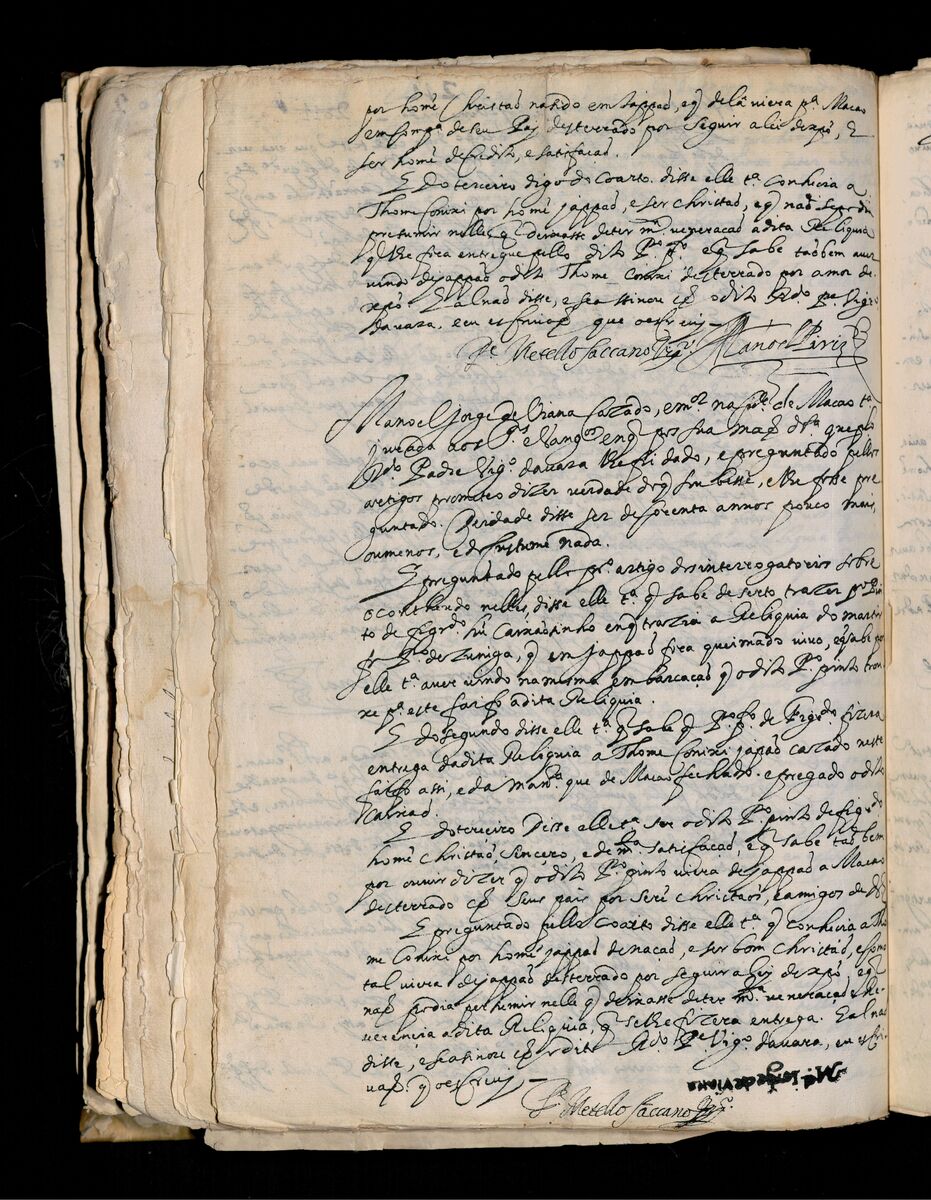 por homē Christaõ nasido em Jappaõ, e q̃ de lá viera pª Macao
em comp.ª de seu Pay desterrado por seguir a lei de xpõ, E
ser homē de credito, e satisfacaõ.
E do terceiro digo do coarto. disse elle tª conhecia a
Thome Conixi por homē Jappaõ, e ser christaõ, e q̃ naõ se podia
prezumir nelle q̃ deixasse de ter m.ta veneracaõ a dita Reliquia
q̃ lhe fora entregue pello dito P.º e q̃ sabe taõbem aver
vindo de Jappaõ o dito Thome Conixi desterrado por amor de
xpõ. E al naõ disse, e se assinou cõ o dito R.do P.e Vig.ro
da vara. e eu escrivaõ que o escrevi
P.e Metello Saccano Manoel Periz
Manoel Jorge de Viana cazado, e m.or na cid.e de Macao tª
jurada aos S.tos Evang.os en q̃ pos sua maõ dr.ta que pello
R.do Padre Vig.ro da vara lhe foi dado, e preguntado pellos
artigos prometeo dizer verdade do q̃ soubesse, e lhe fosse pre
guntado. De idade disse ser de secenta annos pouco mais,
ou menos, e do custume nada.
E preguntado pello pr.º artigo dos interrogatorios sobre
o contheudo nelles, disse elle tª q̃ sabe de serto trazer P.º Pin
to de Figr.do hũ caixaõsinho en q̃ trazia a Reliquia do martir
fr. P.º de Zuniga, q̃ em Jappaõ fora queimado vivo, e q̃ sabe por
elle tª aver vindo na mesma embarcacaõ q̃ o dito P.º pinto trou
xe pª este Faifo a dita Reliquia.
E do segundo disse elle tª q̃ sabe q̃ P.º P.to de Figr.do fizera
entrega da dita Reliquia a Thome Conixi japaõ cazado neste
faifo assi, e da man.ra que de Macao fechado e pregado o dito
Caixaõ.
E do terceiro Disse elle tª ser o dito P.º pinto de figr.do
homē christaõ, sincero, e de m.ta satisfacaõ, e q̃ sabe taõbem
por ouvir dizer q̃ o dito P.º pinto viera de Jappaõ a Macao
desterrado cõ seus pais por serē christaos, e amigos de Ds̃
E preguntado pello coarto disse elle tª q̃ conhecia a Tho
me Conixi por homē Jappaõ de nacaõ, e ser bom christaõ, e como
tal viera de Jappaõ desterrado por seguir a lei de xpõ, e q̃
naõ podia prezumir nelle q̃ deixasse de ter m.ta veneracaõ e Re
verencia a dita Reliquia, q̃ se lhe fizera entrega. E al naõ
disse, e se asinou cõ o dito R.do P.e Vig.ro da vara, eu escri
vaõ q̃ o escrevi
M.el Jorge de Viana
P.e Metello Saccano